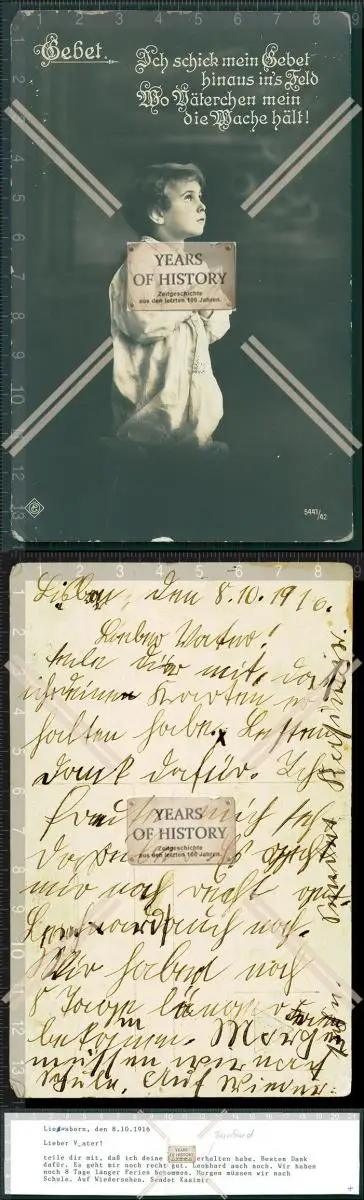 Gebet.
Ich schick mein Gebet
hinaus in's Feld
Wo Väterchen mein
die Wache hält!
YEARS
OF HISTORY
Zeitgeschichte
aus den letzten 100 Jahren.
5441/42
den 8.10.1916.
Lieber Vater!
teile dir mit, daß
ich deine Karten er
halten habe. Besten
dank dafür. Ich
freute mich sehr
Es geht
mir noch recht gut.
Leonhard auch noch.
Wir haben noch
8 Tage länger Ferien
bekommen. Morgen
müssen wir nach
Schule. Auf Wieder-
YEARS
OF HISTORY
Zeitgeschichte
aus den letzten 100 Jahren.
den 8.10.1916
Lieber V_ater!
teile dir mit, daß ich deine erhalten habe. Besten Dank
dafür. Es geht mir noch recht gut. Leonhard auch noch. Wir haben
noch 8 Tage länger Ferien bekommen. Morgen müssen wir nach
Schule. Auf Wiedersehen. Sendet Kasimir